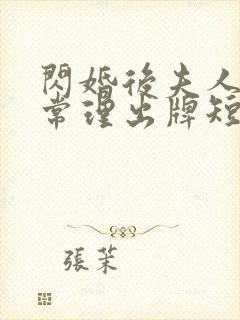 閃婚後夫人
常理出牌短
張茉